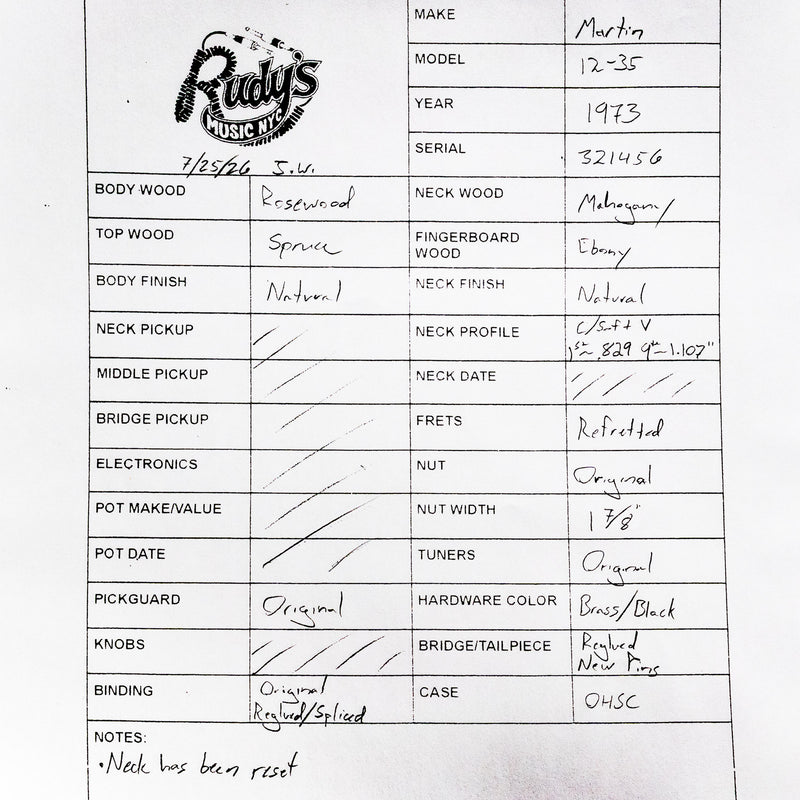 Rudy's
MUSIC NYC
7/25/26 J.W.
MAKE Martin
MODEL 12-35
YEAR 1973
SERIAL 321456
BODY WOOD Rosewood
NECK WOOD Mahogany
TOP WOOD Spruce
FINGERBOARD WOOD Ebony
BODY FINISH Natural
NECK FINISH Natural
NECK PICKUP
NECK PROFILE C/Soft V
1st~ .829 9th~1.107"
MIDDLE PICKUP
NECK DATE
BRIDGE PICKUP
FRETS Refretted
ELECTRONICS
NUT Original
POT MAKE/VALUE
NUT WIDTH 1 7/8"
POT DATE
TUNERS Original
PICKGUARD Original
HARDWARE COLOR Brass/Black
KNOBS
BRIDGE/TAILPIECE Reglued
New Pins
BINDING Original
Reglued/Spliced
CASE OHSC
NOTES:
•Neck has been reset